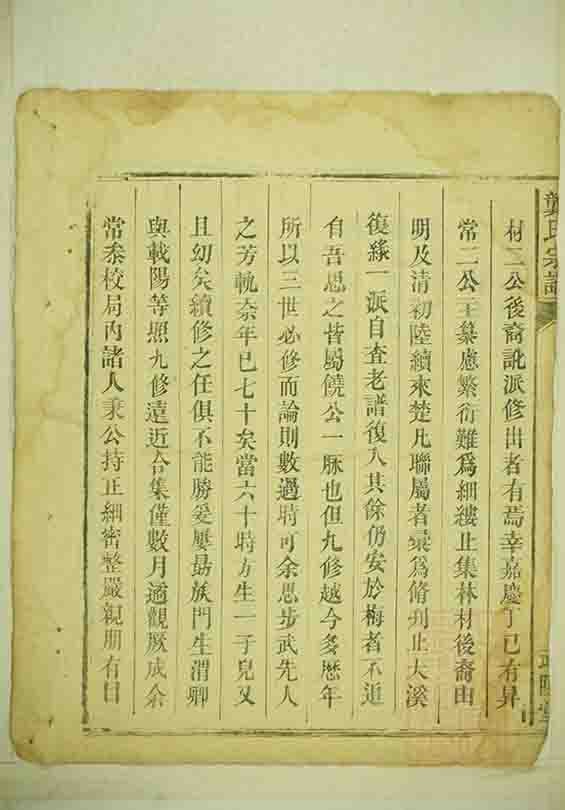 龔氏宗譜
材二公後裔訛派修出者有焉幸嘉慶丁巳有昇
常二公主纂慮繁衍難爲細縷止集林材後裔由
明及清初陸續來楚凡聯屬者彙爲脩刋止大溪
復緣一派自查老譜復入其餘仍安於梅者不追
自吾思之皆屬饒公一脉也但九修越今多歴年
所以三世必修而論則數過時可余思步武先人
之芳軌奈年已七十矣當六十時方生一子兒又
且幼矣續修之任俱不能勝爰屢勗族門生渭卿
與載陽等照九修遠近合集僅數月遹觀厥成余
常忝校局內諸人秉公持正細密整嚴親朋有目